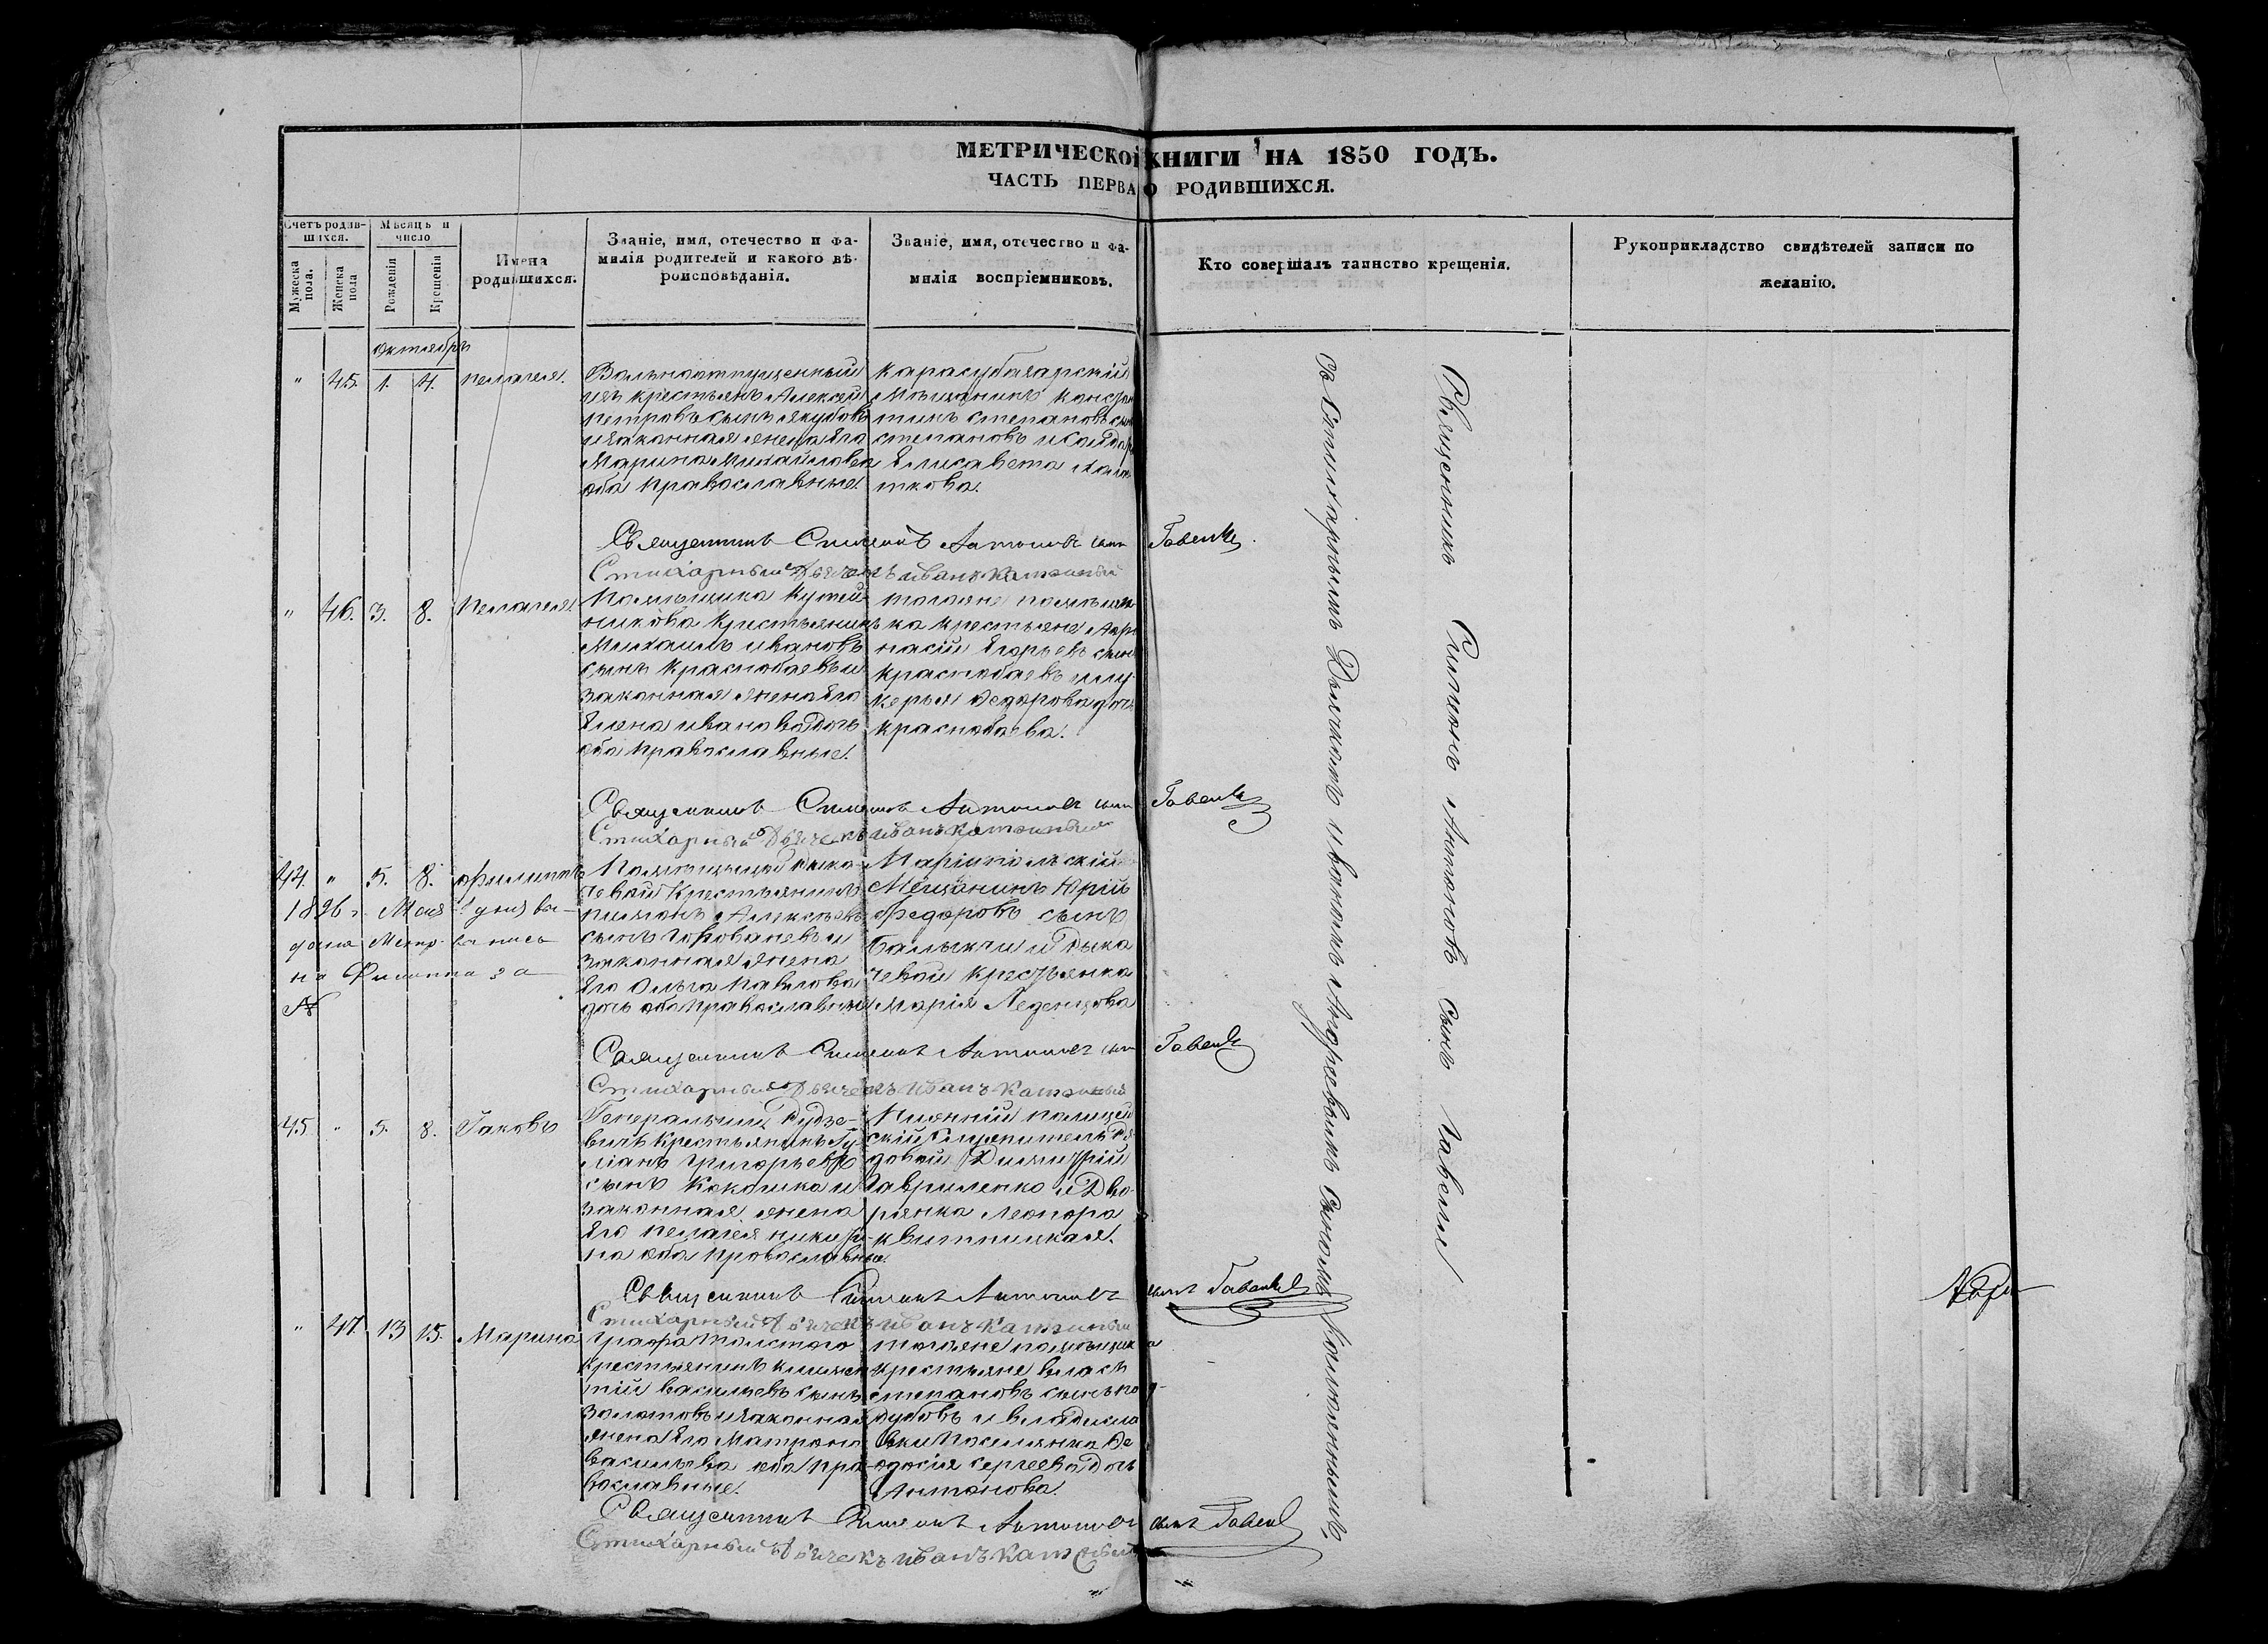 МЕТРИЧЕСКОЙ КНИГИ НА 1850 ГОДЪ.
ЧАСТЬ ПЕРВА О РОДИВШИХСЯ.
Счетъ родив-
шихся.
Мужеска пола.
Женска пола
Мѣсяцъ и
число
Рожденія
Крещенія
Имена
родившихся.
Званіе, имя, отечество и фа-
милія родителей и какого вѣ-
роисповѣданія.
Званіе, имя, отечество и фа-
милія воспріемниковъ.
Кто совершалъ таинство крещенія.
Рукоприкладство свидѣтелей записи по
желанію.
Октябрь
" 45. 1. 4. Пелагея.
Вольноотпущенный
изъ крестьянъ Алексей
петровъ сынъ якубовъ
и законная жена Его
Марина Михайлова
оба православные.
Карасубазарскій
Мѣщанинъ Конста
тинъ степановъ сын
степановъ и
Елисавета
ткова.
Священникъ Симеонъ Антоновъ сынъ Гавень
Стихарный Дьячекъ Иванъ
" 46. 3. 8. Пелагея.
Помѣщика
никова Крестьянинъ
Михаилъ ивановъ
сынъ Краснобаевъ и
законная жена Его
Елена иванова дочь
оба православные.
тогоже помѣщи
ка крестьяне
насій Егорьевъ сын
краснобаевъ и глу
керья Федорова доч
краснобаева.
Священникъ Симеонъ Антоновъ сынъ Гавень
Стихарный Дьячекъ Иванъ
44. " 5. 8. Филиппъ
1896 г. Мая
дана Метр. выпись
на Филиппа за
№
Помѣщицы Дыка
чевой Крестьянинъ
пименъ Алексѣевъ
сынъ
законная жена
Его Ольга Павлова
дочь оба православные
Маріупольскій
Мещанинъ Юрій
Федоровъ сынъ
Балыкчи и Дыка
чевой крестьянка
Марія Леденцова
Священникъ Симеонъ Антоновъ сынъ Гавень
Стихарный Дьячекъ Иванъ
45 " 5. 8. Іаковъ
Генеральши Дудзе-
вичъ Крестьянинъ
ліанъ Григорьевъ
сынъ Кокошка и
законная жена
Его пелагея никити
на оба православные.
полицей
скій служитель Ря
довой Димитрій
Гавриленко и Дво-
рянка Леонора
квитницкая.
Священникъ Симеонъ Антоновъ сынъ Гавень
Стихарный Дьячекъ Иванъ
" 47. 13 15. Марина
Графа Толстого
крестьянинъ климен
тій васильевъ сынъ
золотовъ и законная
жена Его Матрона
васильева оба пра-
вославные.
тогоже помѣщика
крестьяне власъ
степановъ сынъ по
дубовъ и владисла
вки поселянка Фе
одосія сергеева дочь
Антонова.
Священникъ Симеонъ Антоновъ сынъ Гавень
Стихарный Дьячекъ Иванъ
Священникъ Симеонъ Антоновъ сынъ Гавень
съ Стихарнымъ Дьячкомъ иваномъ Андреевымъ сыномъ